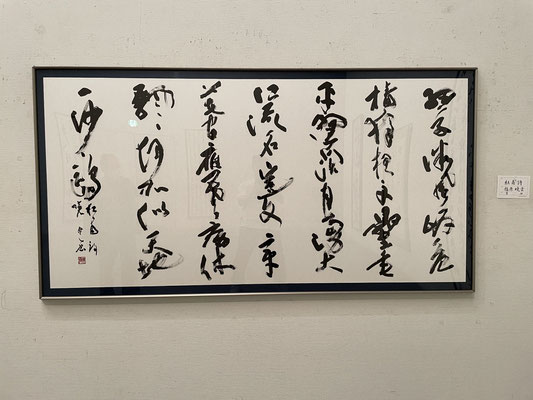 細草微風岸危
檣獨夜舟星垂
平野闊月湧大
江流名豈文章
著官應老病休
飄々何所似天地
一沙鷗
杜甫詩
杜甫詩